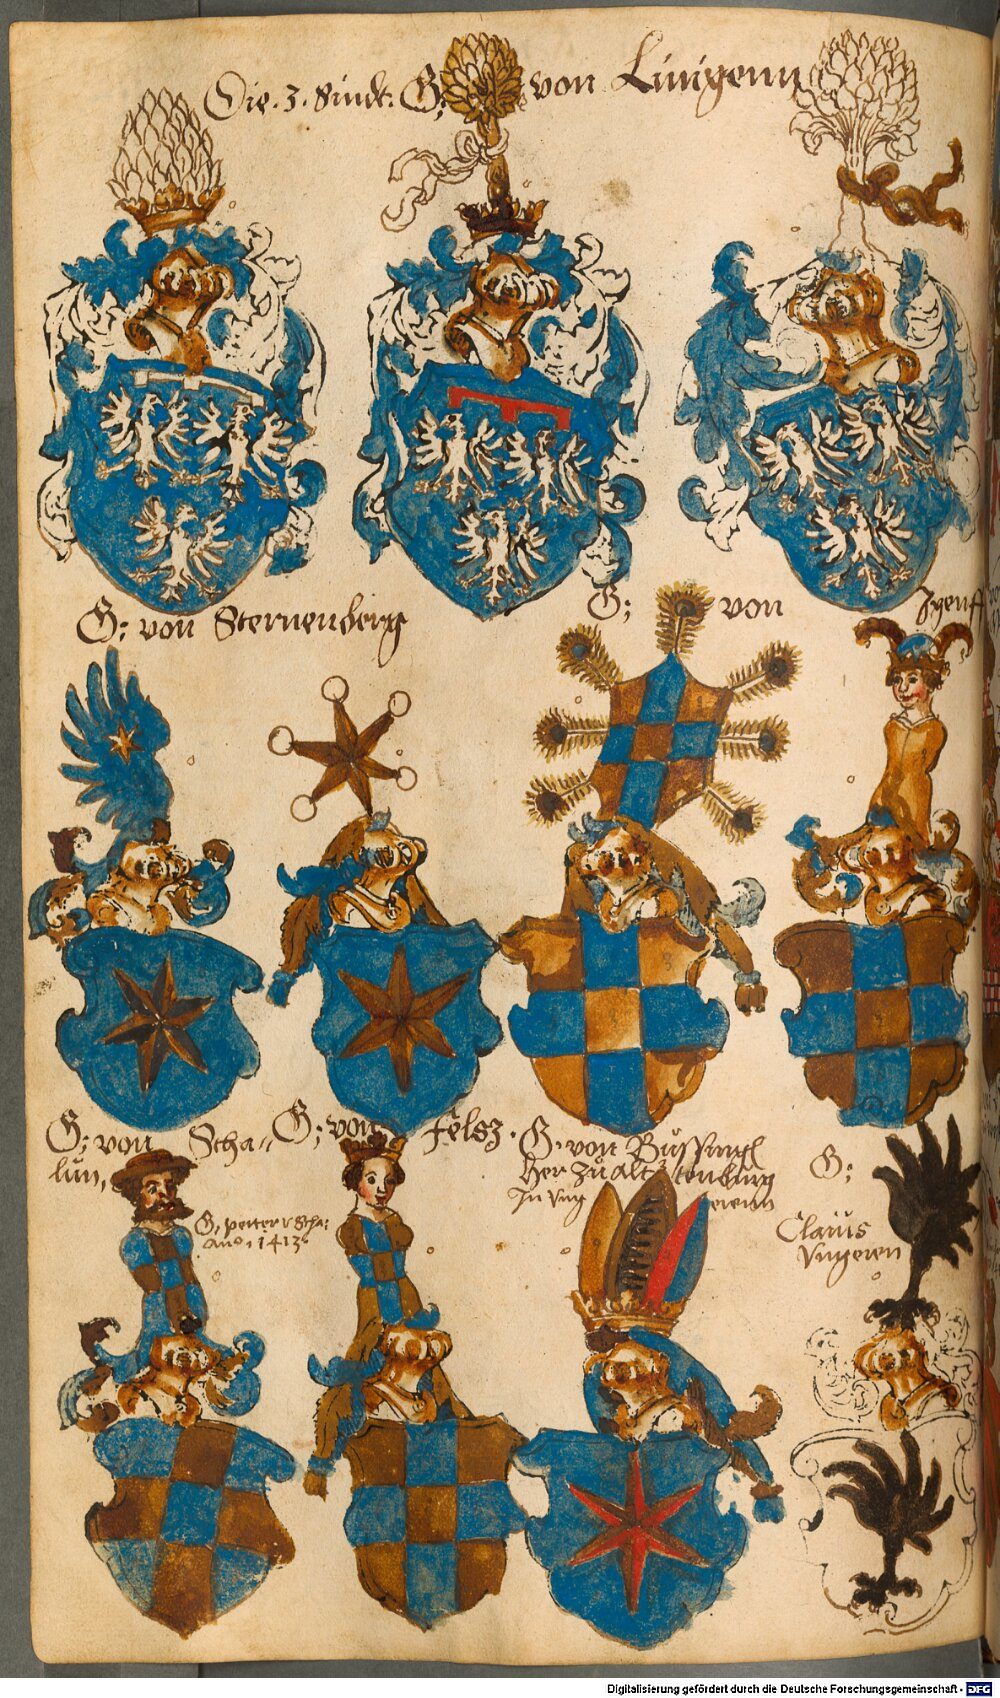 Die .3. sindt. G; von Linigenn
G; von Sternenberg
G; von
G; von Scha-
lun,
G; von Felsz.
G. von
Her zu altenburg
In Ung
G;
G, peiter v Scha:
Ano 1413
Claus
Ungeren
Digitalisierung gefördert durch die Deutsche Forschungsgemeinschaft - DFG